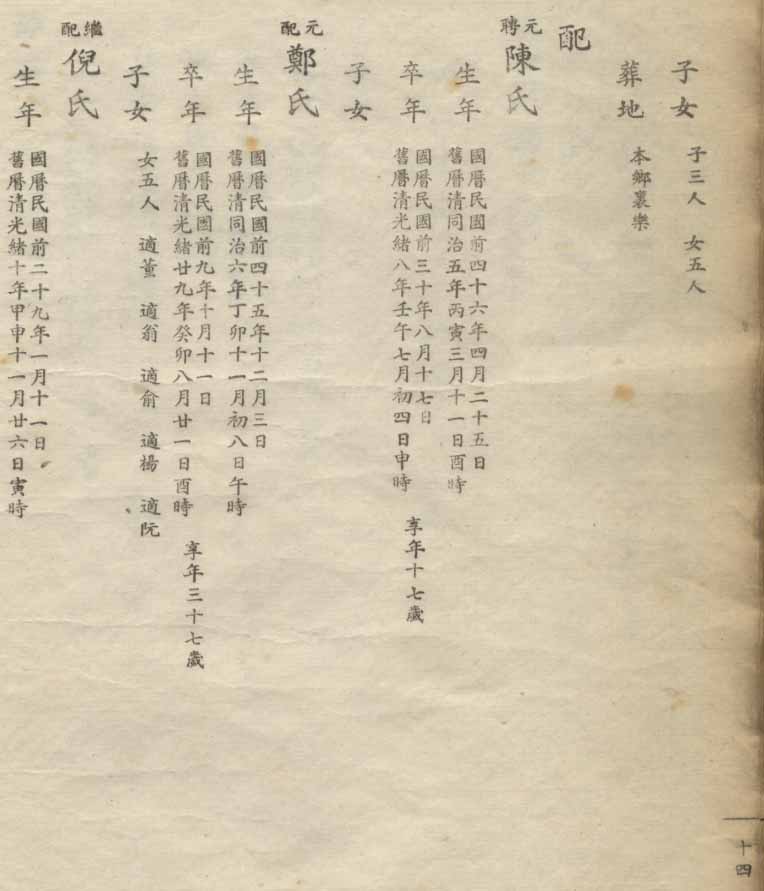 子女 子三人 女五人
葬地 本鄉裏樂
配
元聘 陳氏
生年 國曆民國前四十六年四月二十五日
舊曆清同治五年丙寅三月十一日酉時
卒年 國曆民國前三十年八月十七日
舊曆清光緒八年壬午七月初四日申時 享年十七歲
子女
元配 鄭氏
生年 國曆民國前四十五年十二月三日
舊曆清同治六年丁卯十一月初八日午時
卒年 國曆民國前九年十月十一日
舊曆清光緒廿九年癸卯八月廿一日酉時 享年三十七歲
子女 女五人 適董 適翁 適俞 適楊 適阮
繼配 倪氏
生年 國曆民國前二十九年一月十一日
舊曆清光緒十年甲申十一月廿六日寅時
十四